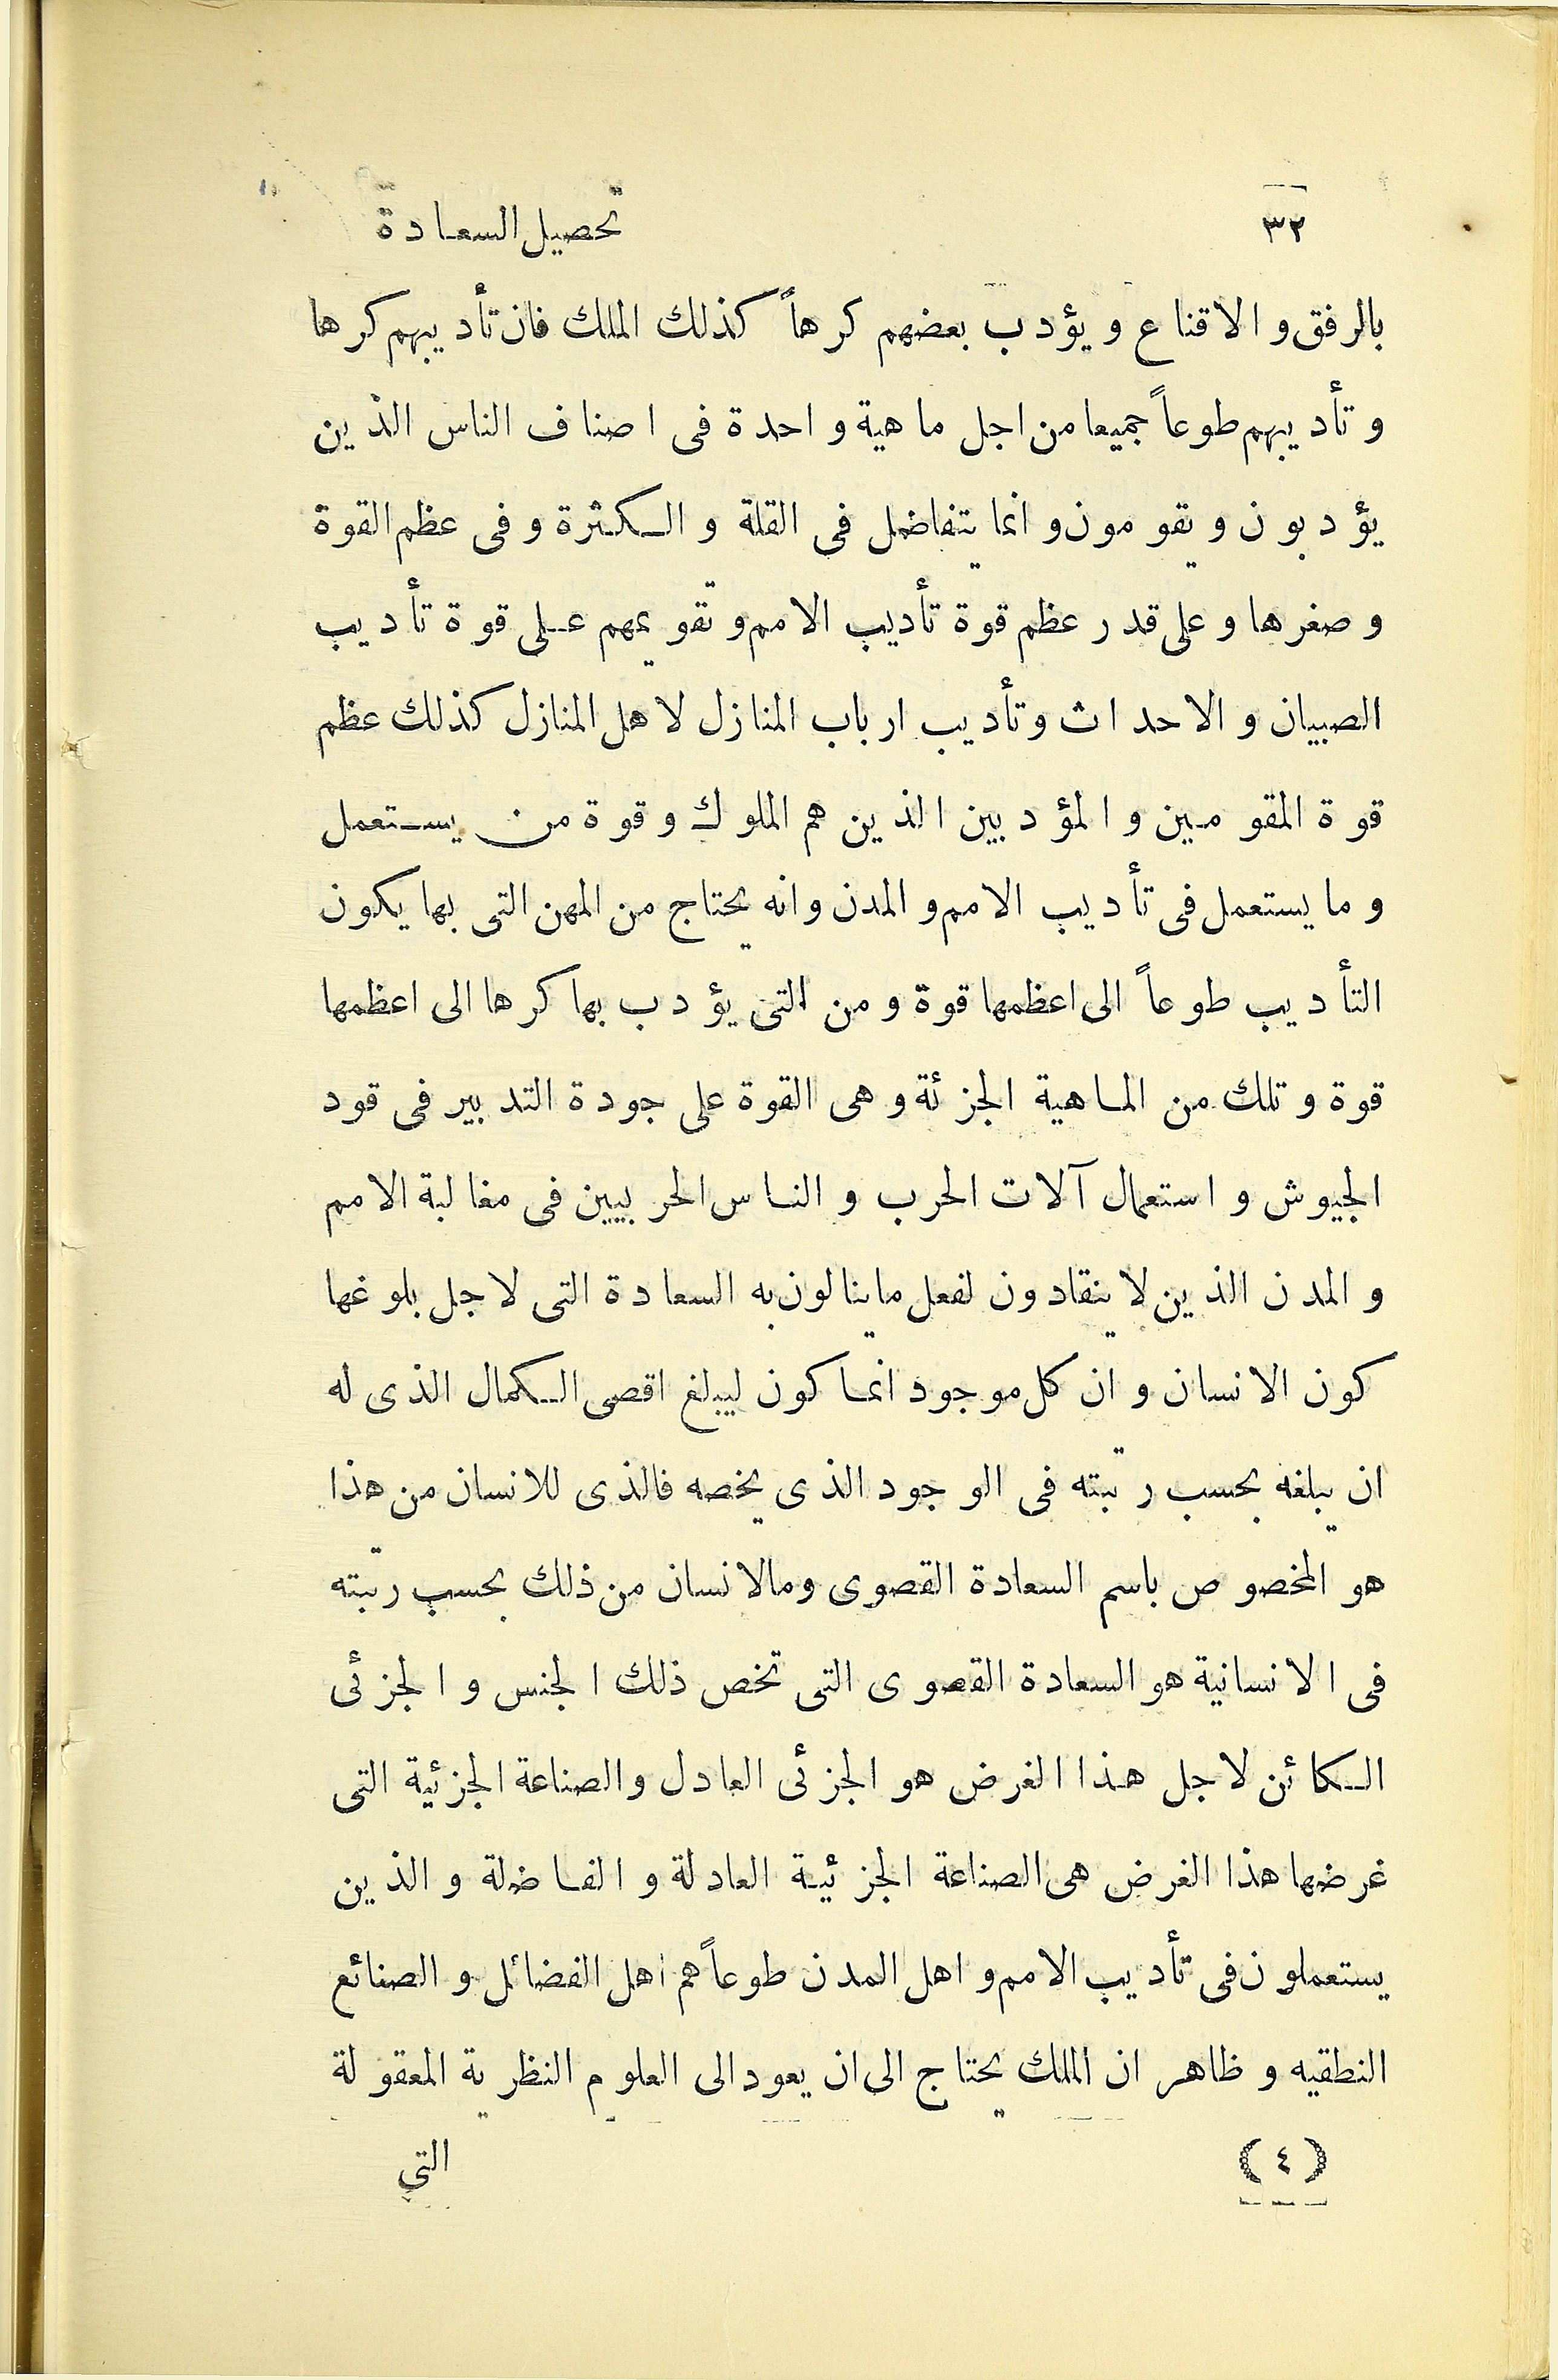 ٣٢ تحصيل السعادة
بالرفق والاقناع ويؤدب بعضهم كرهاً كذلك الملك فان تأديبهم كرها
وتأديبهم طوعاً جميعا من اجل ماهية واحدة فى اصناف الناس الذين
يؤدبون ويقومون وانما يتفاضل فى القلة والكثرة وفى عظم القوة
وصغرها وعلى قدر عظم قوة تأديب الامم وتقويمهم على قوة تأديب
الصبيان والاحداث وتأديب ارباب المنازل لاهل المنازل كذلك عظم
قوة المقومين والمؤدبين الذين هم الملوك وقوة من يستعمل
وما يستعمل فى تأديب الامم والمدن وانه يحتاج من المهن التى بها يكون
التأديب طوعاً الى اعظمها قوة ومن التى يؤدب بها كرها الى اعظمها
قوة وتلك من الماهية الجزئة وهى القوة على جودة التدبير فى قود
الجيوش واستعمال آلات الحرب والناس الحربيين فى مغالبة الامم
والمدن الذين لا ينقادون لفعل ما ينالون به السعادة التى لاجل بلوغها
كون الانسان وان كل موجود انما كون ليبلغ اقصى الكمال الذى له
ان يبلغه بحسب رتبته فى الوجود الذى يخصه فالذى للانسان من هذا
هو المخصوص باسم السعادة القصوى ومالانسان من ذلك بحسب رتبته
فى الانسانية هو السعادة القصوى التى تخص ذلك الجنس والجزئى
الكائن لاجل هذا الغرض هو الجزئى العادل والصناعة الجزئية التى
غرضها هذا الغرض هى الصناعة الجزئية العادلة والفاضلة والذين
يستعملون فى تأديب الامم واهل المدن طوعاً هم اهل الفضائل والصنائع
النطقيه وظاهر ان الملك يحتاج الى ان يعود الى العلوم النظرية المعقولة
(٤) التي